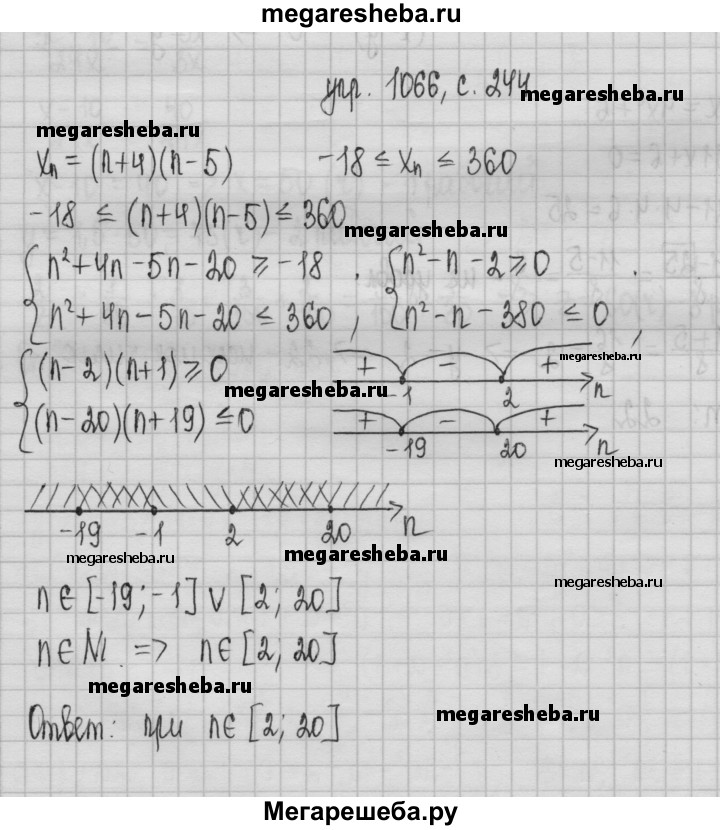 megaresheba.ru
упр. 1066, с. 244
megaresheba.ru
megaresheba.ru
xₙ = (n+4)(n-5) -18 ≤ xₙ ≤ 360
-18 ≤ (n+4)(n-5) ≤ 360
megaresheba.ru
{ n²+4n-5n-20 ≥ -18 , { n²-n-2 ≥ 0 .
n²+4n-5n-20 ≤ 360 , n²-n-380 ≤ 0 ,
{ (n-2)(n+1) ≥ 0 + - + megaresheba.ru
-1 2 n
megaresheba.ru
(n-20)(n+19) ≤ 0 + - +
-19 20 n
megaresheba.ru
-19 -1 2 20 n
megaresheba.ru megaresheba.ru
n∈[-19; -1] ∨ [2; 20] megaresheba.ru
n∈N. => n∈[2; 20]
megaresheba.ru
Ответ: при n∈[2; 20] megaresheba.ru
Мегарешеба.ру